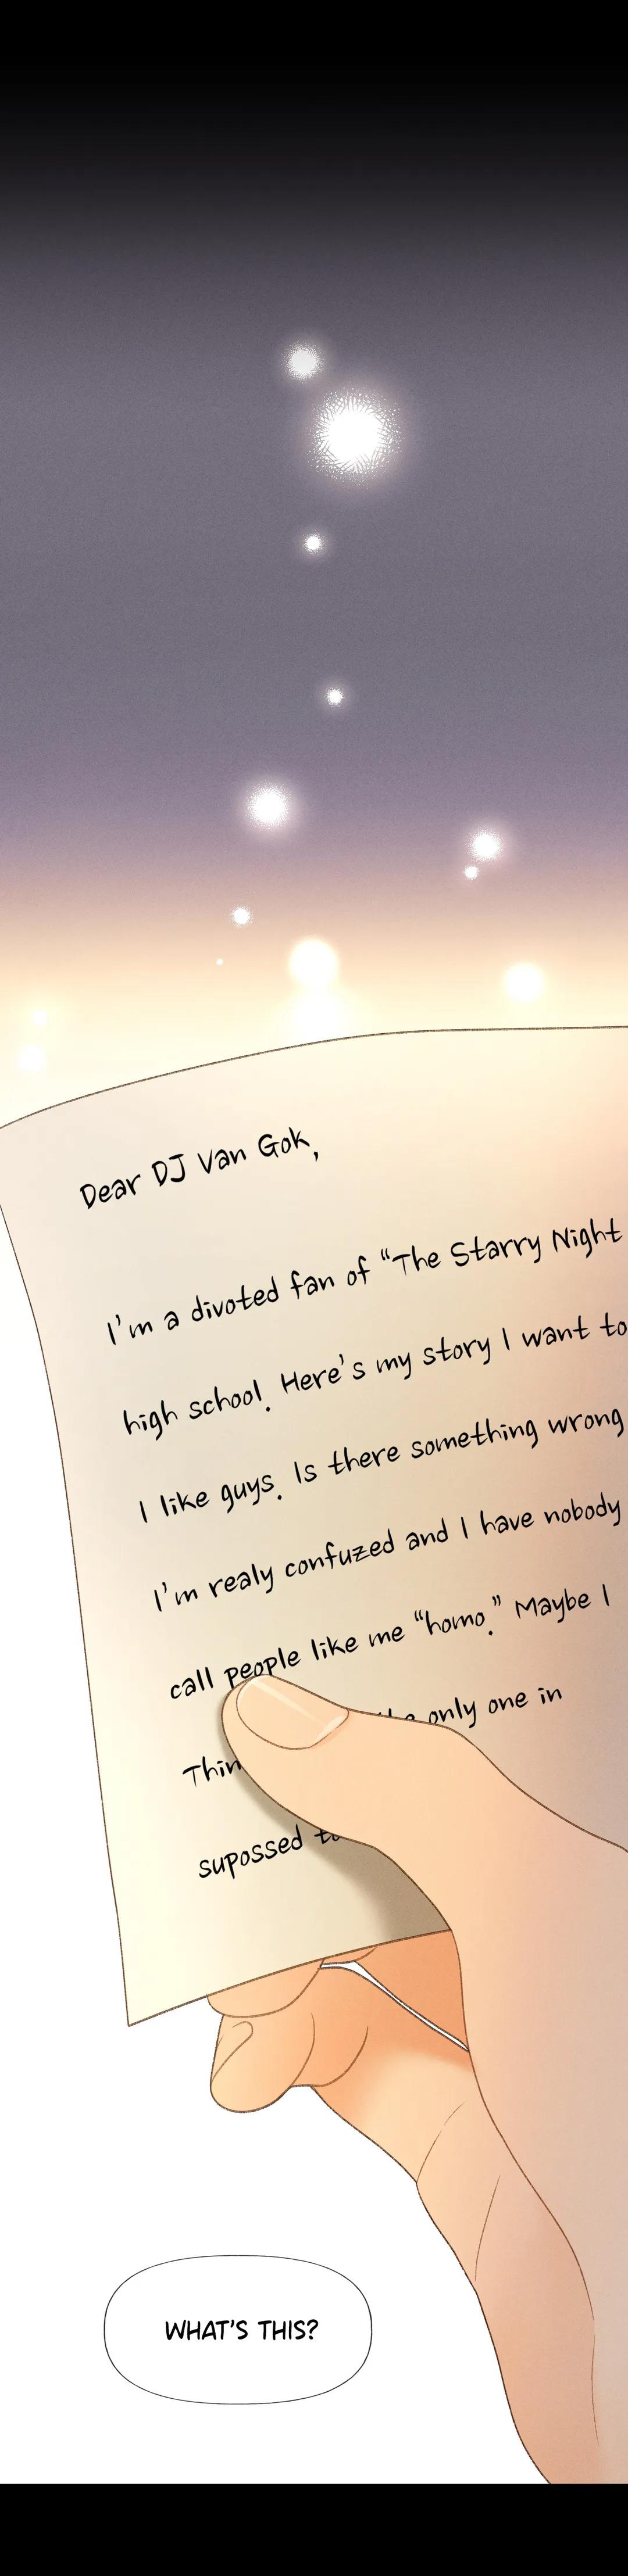 Dear DJ Van Gok,
I'm a divoted fan of “The Starry Night
high school. Here's my story I want to
I like guys. Is there something wrong
I'm realy confuzed and I have nobody
call people like me “homo.” Maybe I
Thin only one in
supossed
WHAT'S THIS?